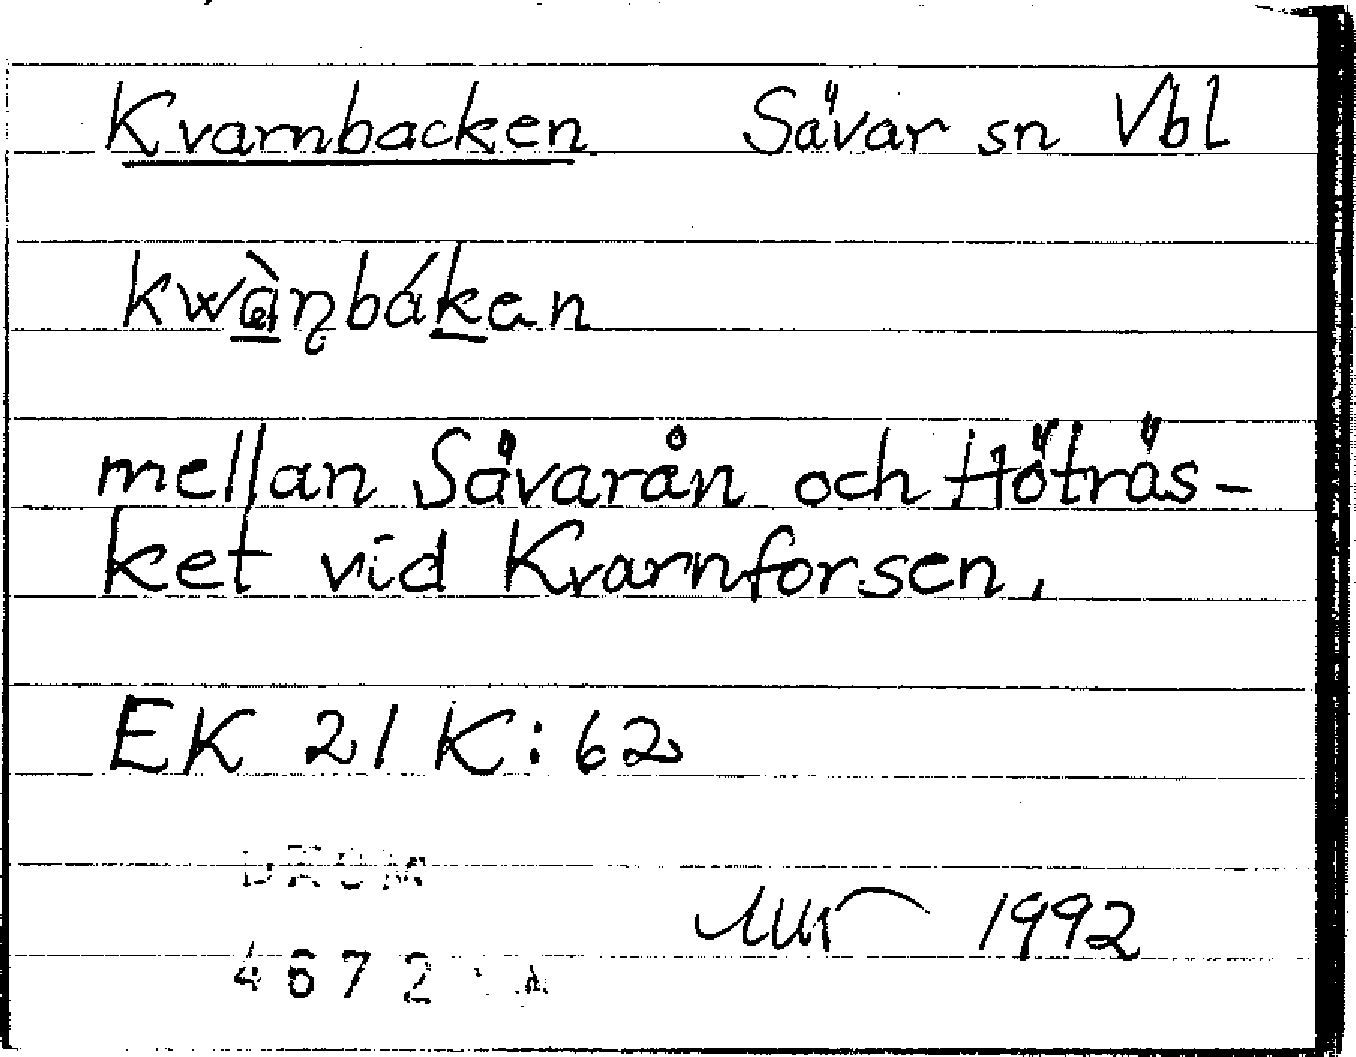 Kvarnbacken Sävar sn Vbl
kwàɳbákan
mellan Sävarån och Höträs-
ket vid Kvarnforsen.
EK 21 K:62
DAUM
4672
1992